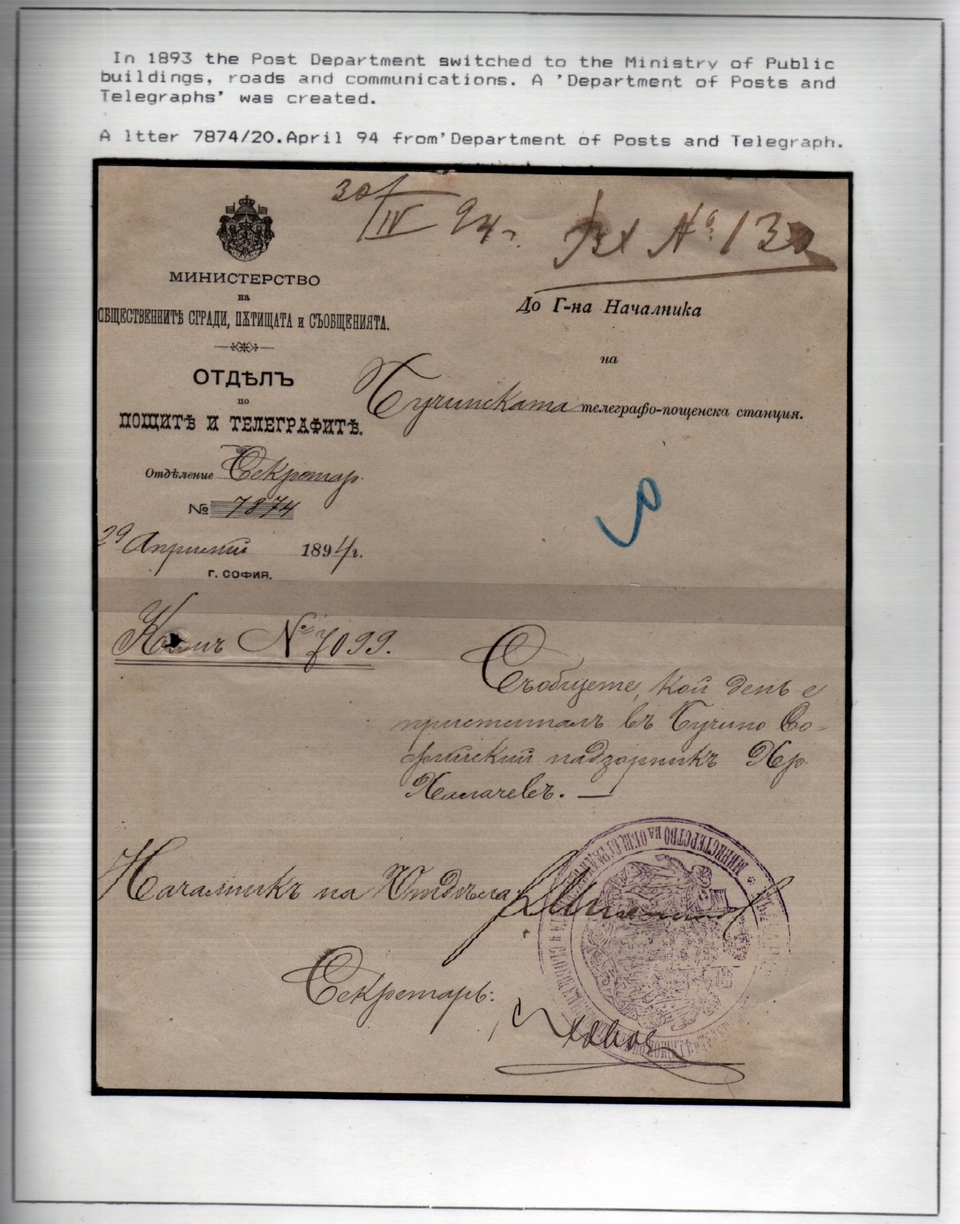 In 1893 the Post Department switched to the Ministry of Public
buildings, roads and communications. A 'Department of Posts and
Telegraphs' was created.
A ltter 7874/20.April 94 from'Department of Posts and Telegraph.
30/IV 94 г.
Вх № 132
МИНИСТЕРСТВО
НА
ОБЩЕСТВЕННИТѢ СГРАДИ, ПѪТИЩАТА и СЪОБЩЕНИЯТА.
ОТДѢЛЪ
по
ПОЩИТѢ И ТЕЛЕГРАФИТѢ.
Отдѣление Секретар
№ 7874
29 Априлий 1894 г.
Г. СОФИЯ.
До Г-на Началника
на
Бучинската телеграфо-пощенска станция.
Към № 7099.
Съобщете, кой день е
пристигналъ въ Бучино Со-
фийский надзорникъ Хр.
Началникъ на Отдѣла
Секретарь: